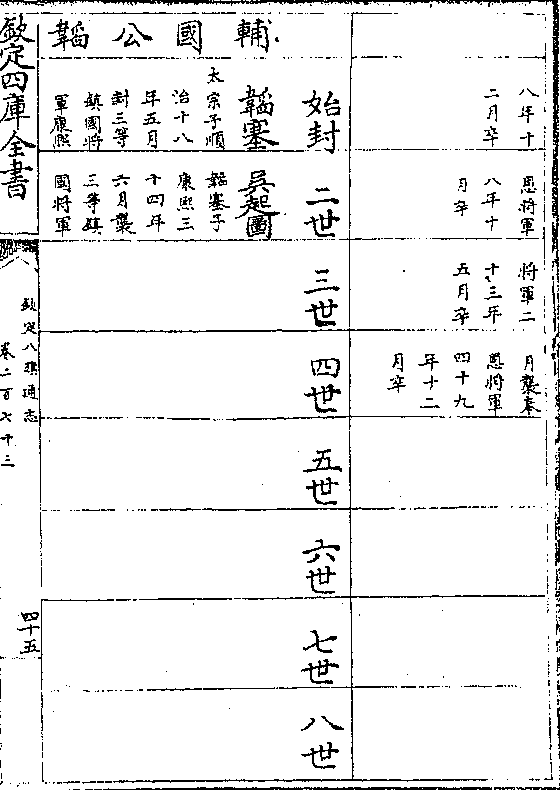 八年十
二月卒
恩將軍
八年十
月卒
將軍二
十三年
五月卒
月襲奉
恩將軍
四十九
年十二
月卒
輔國公韜
始封
韜塞
太宗子順
治十八
年五月
封三等
鎮國將
軍康熙
二世
吳起圖
韜塞子
康熙三
十四年
六月襲
三等鎮
國將軍
三世
四世
五世
六世
七世
八世
欽定四庫全書
欽定八旗通志
卷二百七十三
四十五